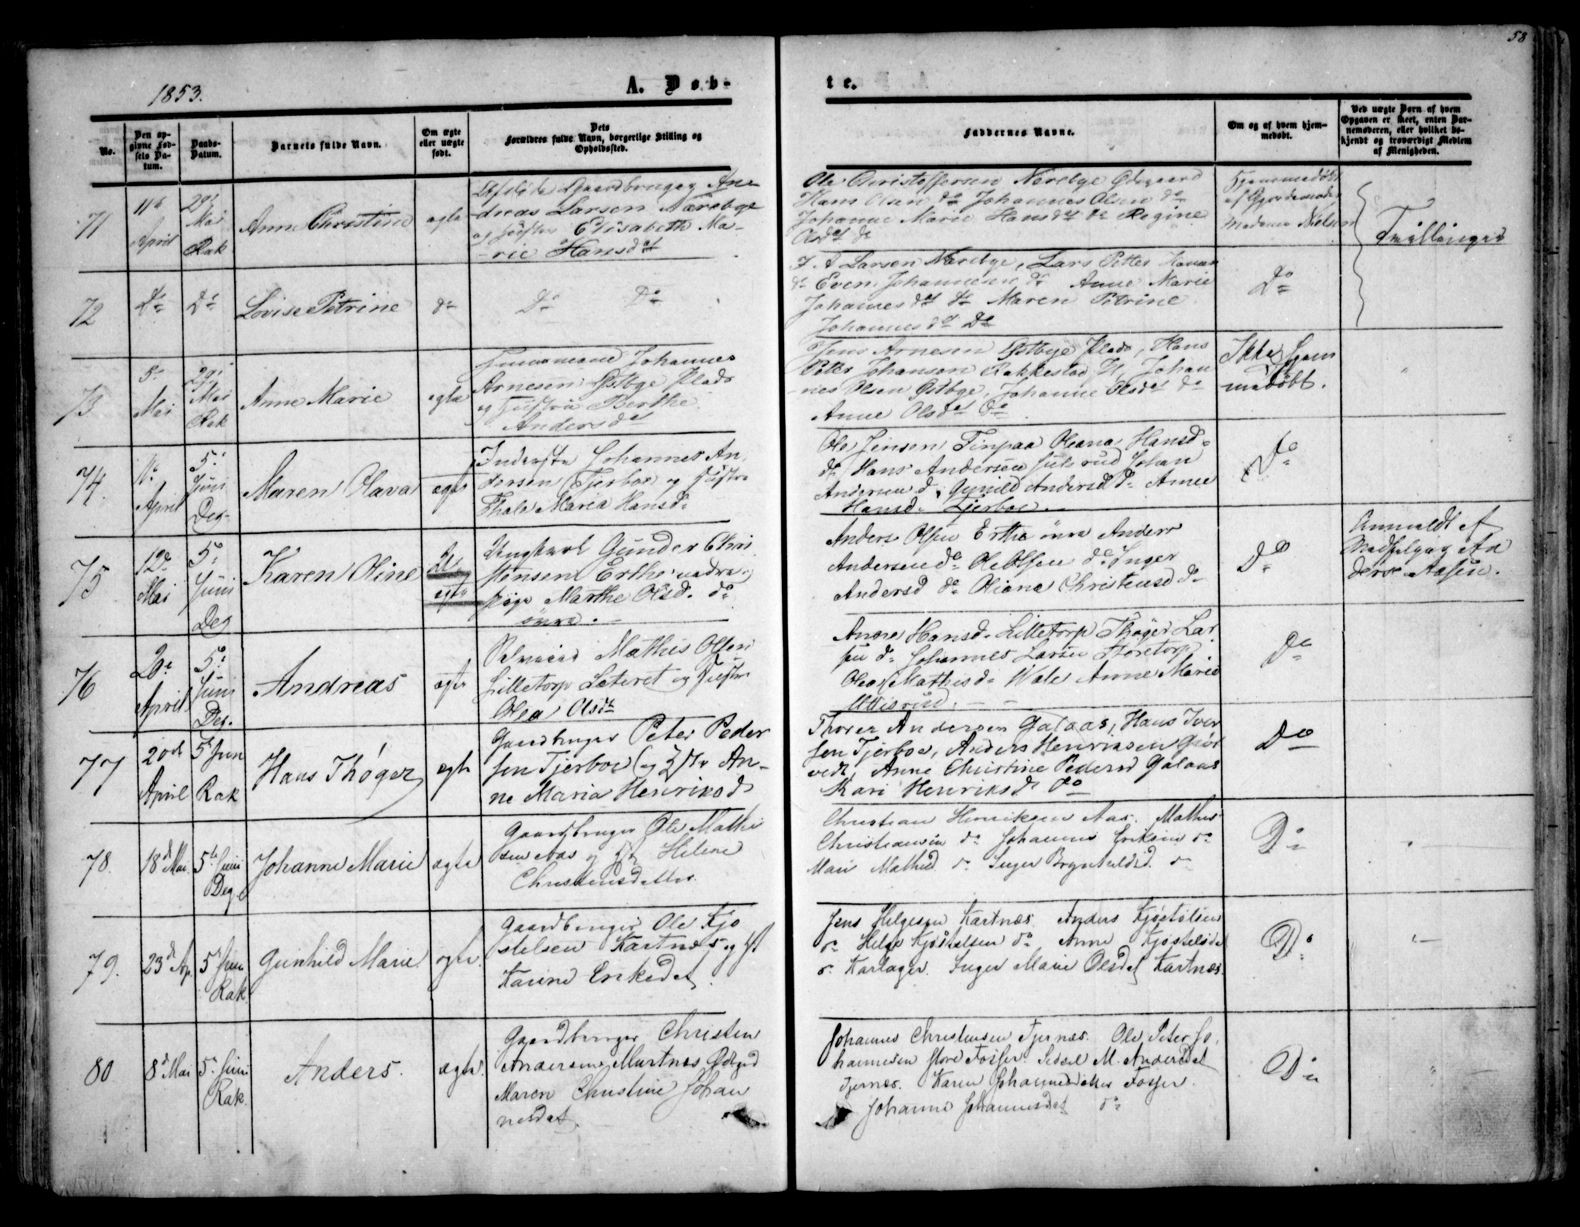 58
1853.
A. Døb-
te.
No.
Den opgivne Fødsels Datum.
Daabs-Datum.
Barnets fulde Navn.
Om ægte eller uægte født.
Dets Forældres fulde Navn, borgerlige Stilling og Opholdssted.
Faddernes Navne.
Om og af hvem hjemmedøbt.
Ved uægte Børn af hvem Opgaven er skeet, enten Barnemoderen, eller hvilket bekjendt og troværdigt Medlem af Menigheden.
71
April
29
Mai
Rak
Anne Christine
ægte
Gaardbruger An
dreas Larsen Nærebye
og Hustru Elisabeth Ma-
rie Hansdt
Ole Christoffersen Nerebye Ødegaard
Hans Olsen do Johannes Olsen do
Johanne Marie Hansdt do Regine
Olsdt do
Hjemmedøbt
af Gjordemoder
Madame Nielsen
Tvillinger
72
Do
Do
Lovise Petrine
do
Do Do
Larsen Nærebye, Lars Petter
do Even Johannesen do Anne Marie
Johannesdt do Maren Petrine
Johannesdt Do
Do
73
5
Mai
29
Mai
Rak
Anne Marie
ægte
Huusmand Johannes
Arnesen Østbye Plads
og Hustru Berthe
Andersdt
Jens Arnesen Østbye Plads, Hans
Petter Johansen Rakkestad Johan
nes Olsen Østbye, Johanne Olsdt do
Anne Olsdt Do
Ikke hjem
medøbt.
74.
April
5
Juni
Deg.
Maren Olava
ægte
Inderste Johannes An
dersen Tjerboe og Hustru
Maria Hansd.
Ole Jensen Finpaa Oleana Hansd.
do Hans Andersen Julsrud Johan
Andersen do Gunild Andersd do Anne
Hansd. Tjerboe.
Do
75
12
Mai
5
Juni
Deg
Karen Oline
ægte
Ungkarl Gunder Chri
stensen Erthe nedre
Pige Marthe Olsd. do
øvre.
Anders Olsen Erthe øvre Anders
Andersen do Ole Olsen do Inger
Andersd do Oliane Christensd do
Do
Anmeldt af
An
ders
76
20
April
5
Juni
Deg.
Andreas
ægte
Mathis Olsen
Lilletorp og Hustru
Olea Olsdt
Anne Hansd. Lilletorp Thøger Lar
sen do Johannes Larsen Storetorp
Olea Mathisd. Anne Marie
Do
77
20d
April
5 Jun
Rak
Hans Thøger
ægte
Gaardbruger Peter Peder
sen Tjerboe og Hstr An-
ne Maria Henriksd.
Thorer Andersen Galaas, Hans Iver
sen Tjerboe, Anders Henriksen
Anne Christine Pedersd Galaas
Kari Henriksd. Do
Do
78.
18d Mai
5t Juni
Deg.
Johanne Marie
ægte
Gaardbruger Ole Mathi
sen Aas og Helene
Christensdatter
Christian Henriksen Aas. Mathis
Christiansen do Johannes Eriksen do
Mari Mathisd do Inger Brynhildsd. do
Do
79.
23d Ap
5 Juni
Rak
Gunhild Marie
ægte
Gaardbruger Ole Kjø
stelsen Kartnæs og Hst
Karine Eriksdt.
Jens Helgesen Kartnæs Anders Kjøstelsen
do Helge Kjøstelsen do Anne Kjøstelsdt
do Karlager. Inger Marie Olsdt Kartnæs.
Do
80
8d Mai
5 Juni
Rak.
Anders.
ægte
Gaardbruger Christen
Andersen Mørtnes Ødegd
Maren Christine Johan
nesdt.
Johannes Christensen Tjernæs. Ole Peter Jo
hannesen store Fosser. Sidsel M. Andersdt
Tjernæs. Karen Johannesdatter Fosser.
Johanne Johannesdt do
Do